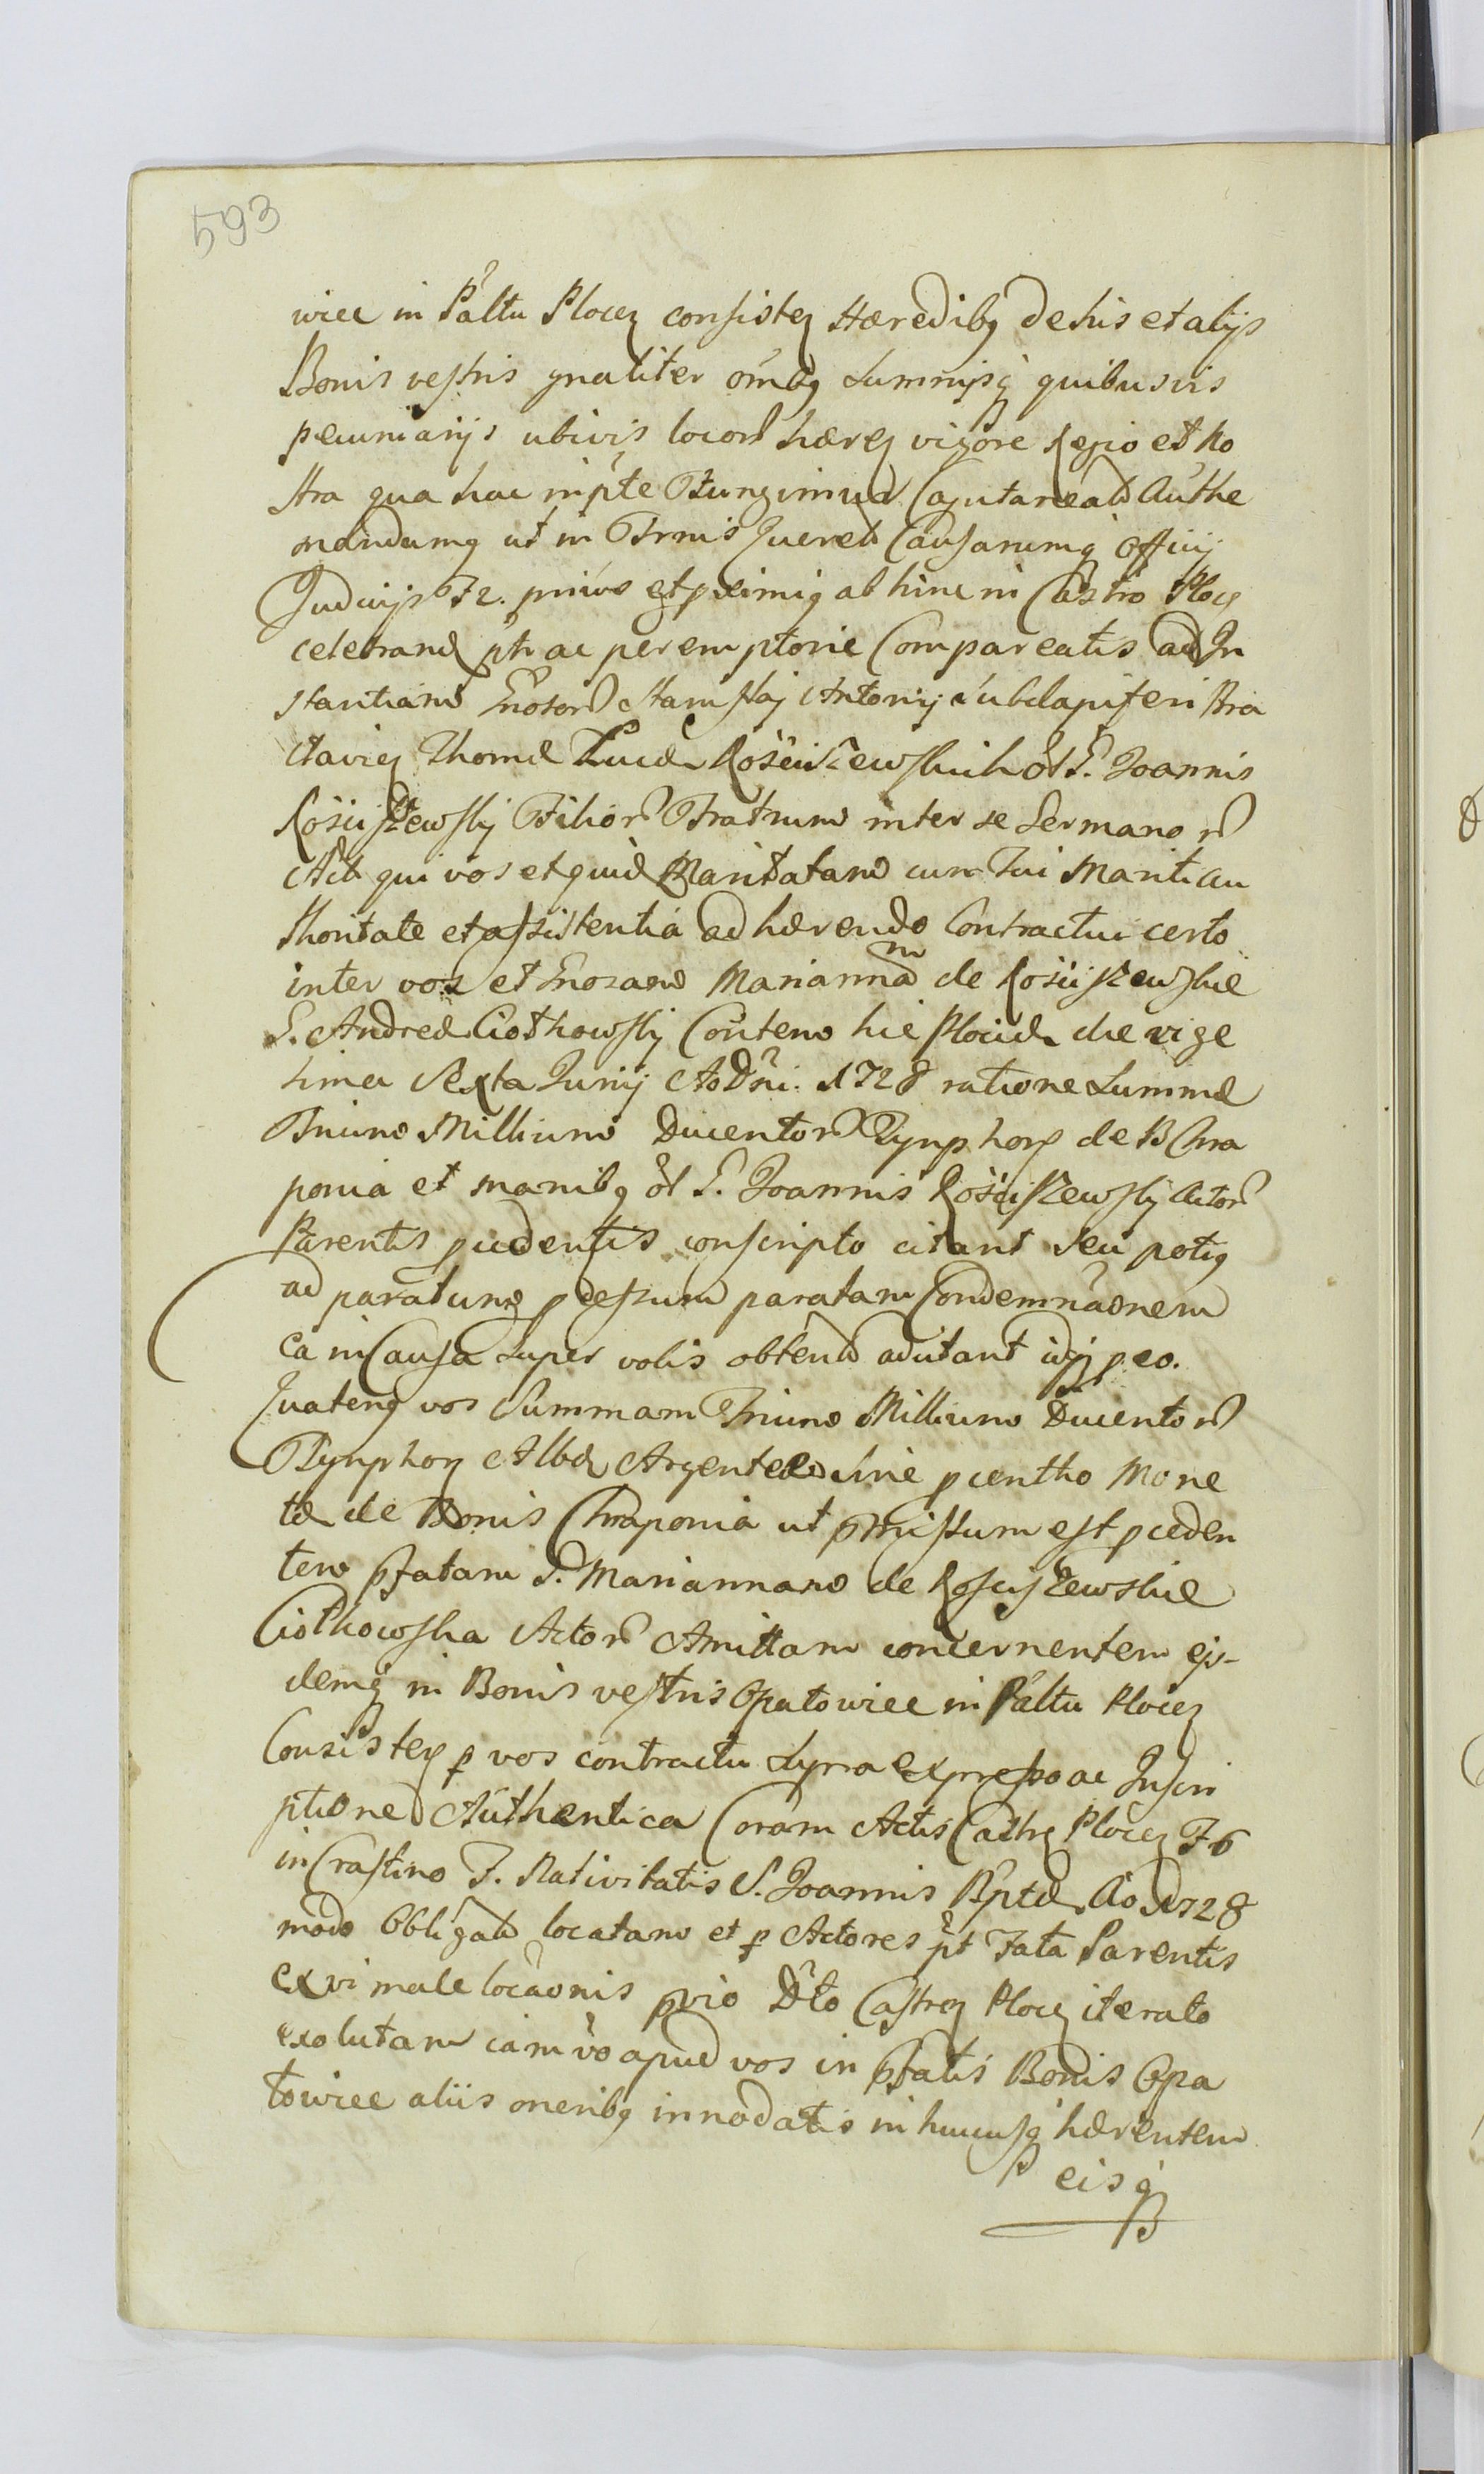 593
wiec in Pâltu Plocen consisten Hæredibq de his et alijs
Bonis vestris gnaliter omibq Summisq quibusvis
pecuniarijs ubivis locor hæren vigore Regio et No
stra qua hac in pte Fungimur Capitaneali Authe
mandamq ut in Frmis Querel Causarumq Officij
Judicijs F2. primo et pximiq ab hinc in Castro Plocen
celebrand ptr ac peremptorie Compareatis ad In
stantiam Gnosor Stanislai Antonij Subdapiferi Bra
claviен Thomæ Lucæ Rościszewskich ol G. Joannis
Rościszewski Filior Fratrum inter se Germanor
Act qui vos et quid Maritatam cum Tui Mariti au
thoritate et assistentia adhærendo Contractui certo
inter vos et Gnosam Mariannam de Rościszewskie
G. Andreæ Ciołkowski Contem hic Plociæ die vige
sima Sexta Junij Ao Dni. 1728 ratione Summæ
Trium Millium Ducentor Tynphon de B Chra
ponia et manibq ol G. Joannis Rościszewski Actor
Parentis pcedentis conscripto citant seu potiq
ad paratum pcessum paratam Condemnãonem
ea in Causa super vobis obtend adcitant idq p eo.
Quatenq vos Summam Trium Millium Ducentor
Tynphon Albæ Argenteæ Sine pcentho Mone
tæ de Bonis Chraponia ut pmissum est pceden
tem pfatam G. Mariannam de Rosciszewskie
Ciołkowska Actor Amittam concernentem ejs-
demq in Bonis vestris Opatowiec in Pâltu Plocen
Consisten p vos contractu supra expresso ac Inscri
ptione Authentica Coram Actis Castren Plocen F6
in Crastino F. Nativitatis S. Joannis Bptæ Ao 1728
modo Obligato locatam et p Actores pt Fata Parentis
ex vi male locãonis pvio Dto Castren Plocen iterato
exolutam iam vo apud vos in pfatis Bonis Opa
towiec aliis oneribq innodatis in hucusq hærentem
eisq